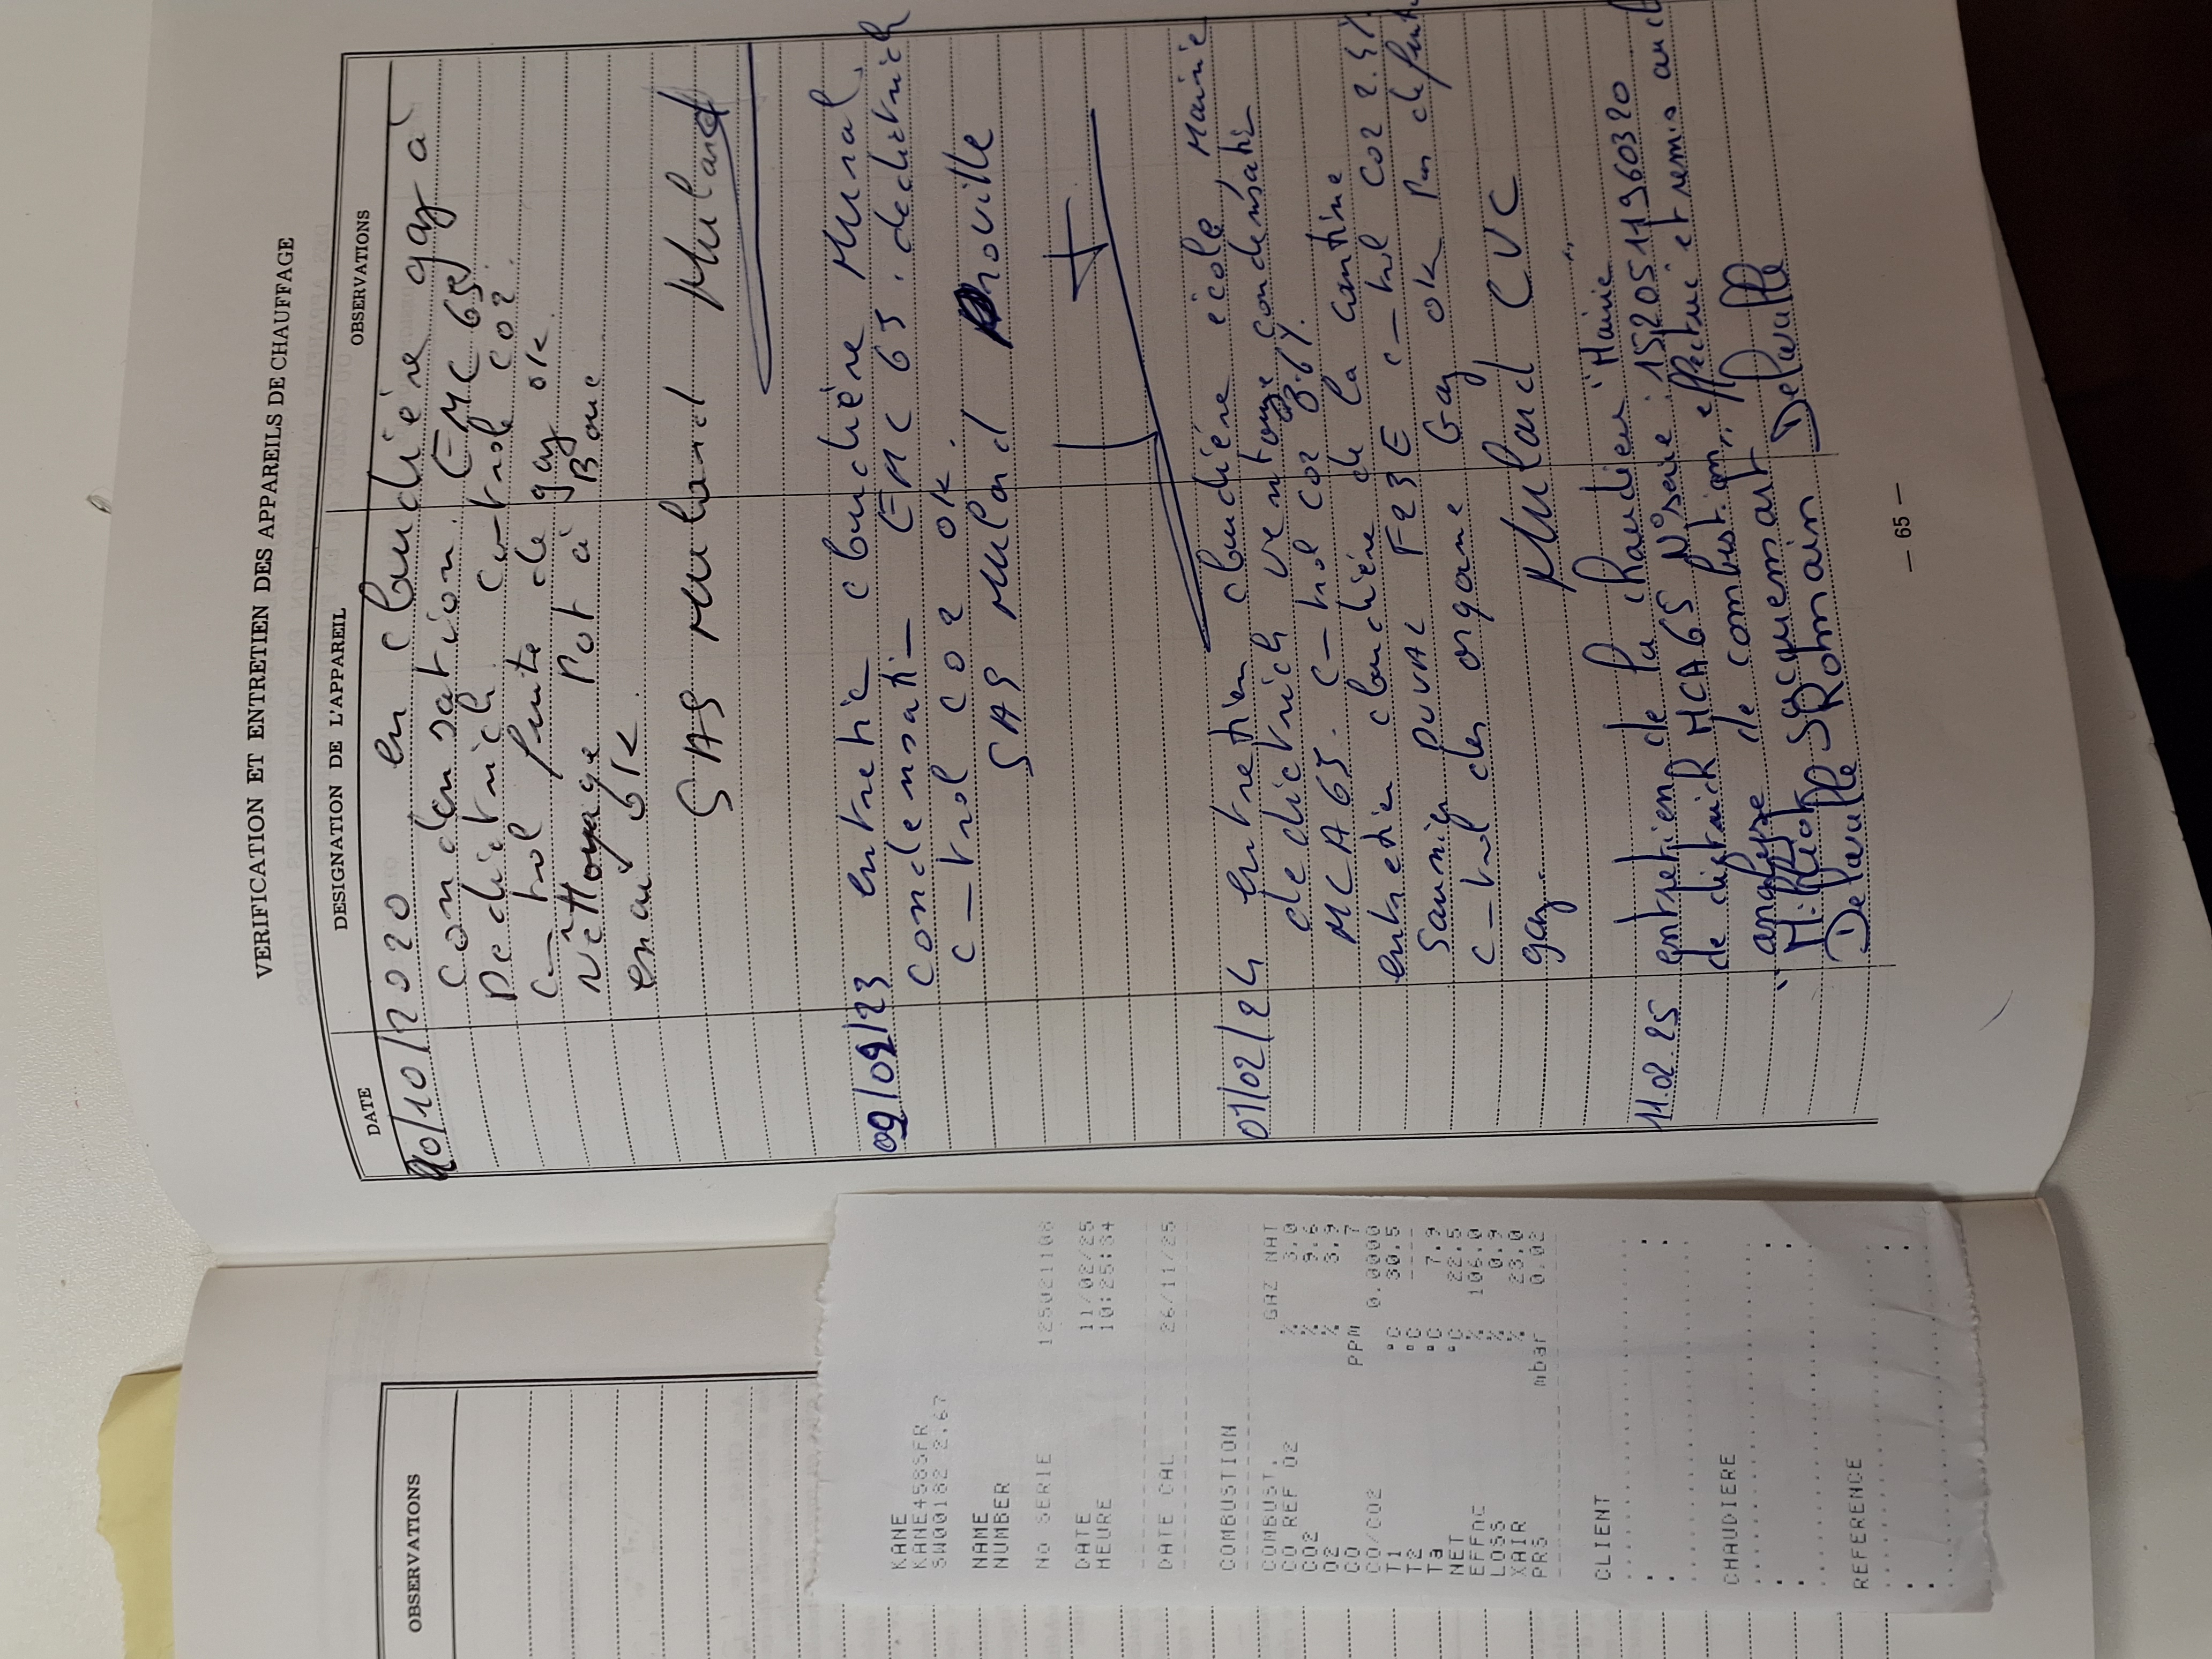 VERIFICATION ET ENTRETIEN DES APPAREILS DE CHAUFFAGE
DATE
DESIGNATION DE L'APPAREIL
OBSERVATIONS
10/10/2020 en chaudière gaz a
condensation EMC 65
Dedietrich c-trole co2.
c-trol fuite de gaz ok.
Néttoyage Pot a Boue
enai ok.
SAS Mulard Mulard
09/09/23 entretie chaudière Mural,
condensati- EMC 65. dedietrich
c-trol co2 ok.
SAS Mulard
01/02/24 entretien chaudière école, Mairie
dedietrich ventouse condensati-
MCA 65. c-trol co2 8.6%.
entretien chaudière de la cantine
Saunier DUVAL F23 E c-trol co2
c-trol des organe Gaz ok Pas de fuite
gaz.
Mulard CVC
11.02.25 entretien de la chaudière "Mairie"
de dietrich MCA65 N°serie: 152051196 0320
analyse de combustion effectué et remis au cl
Jacquemart Delavalle
Delavalle Romain
— 65 —
OBSERVATIONS
KANE
KANE458SFR
SW00182 2.67
NAME
NUMBER
No SERIE 125021108
DATE 11/02/25
HEURE 10:25:34
DATE CAL 26/11/25
COMBUSTION
COMBUST. GAZ NAT
CO REF O2 % 3.0
CO2 % 9.6
O2 % 3.9
CO PPM 7
CO/CO2 0.0000
T1 °C 30.5
T2 °C ---
Ta °C 7.9
NET °C 22.5
EFFnc % 106.0
LOSS % 0.9
XAIR % 23.0
PRS mbar 0.02
CLIENT
CHAUDIERE
REFERENCE